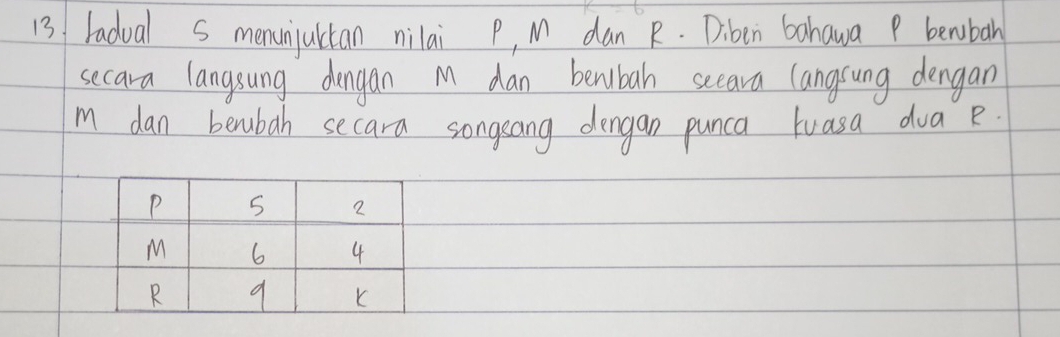 13. Jadual 5 menunjukkan nilai P, M dan R. Diberi bahawa P berubah
secara langsung dengan M dan berubah secara langsung dengan
M dan berubah secara songsang dengan punca kuasa dua R.
P 5 2
M 6 4
R 9 K